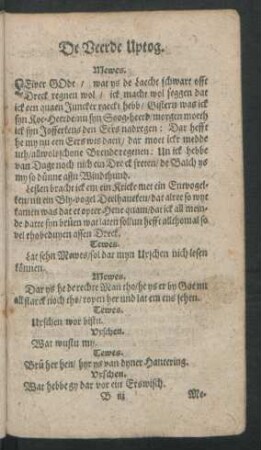 De Veerde Uptog.
Mewes.
Leiver GOde / wat ys de Laecht schwart offt
Dreck regnen wol / ick macht wol seggen dat
ick een quaen Juncker raeckt hebb / Gistern was ick
syn Koe-Heerde unn syn Swog-heerd / morgen moeth
ick syn Jofferkens den Eers nadregen : Dar hefft
he my nu een Eers wis daen / dar moet ickr medde
uth / alltwol schone Brenderegenen : Un ick hebbe
van Dage noch nich een Dreck freten / de Balch ys
my so dünne assn Windthund.
Lesten bracht ick em ein Kricke met ein
ten / nn ein Bly-vogel dat alree so wyt
kamen was dat et oyter Hene quam / dar ick all mein-
de datte syn brüen wat laten sollun hefft allehomal so
vel thobeduyen assen Dreck.
Tewes.
Lat sehn Mewes / sol dar myn Urschen nich lesen
können.
Mewes.
Dar ys he de rechte Man tho / he ys er by Gat nu
all starck noch tho / royen her und lat em ens sehen.
Tewes.
Urschen wor bistu.
Urschen.
Wat wustu my.
Tewes.
Brü her hen / hyr ys van dyner Hantering.
Urschen.
Wat hebbe gy dar vor ein Erswisch.
B iij Me-